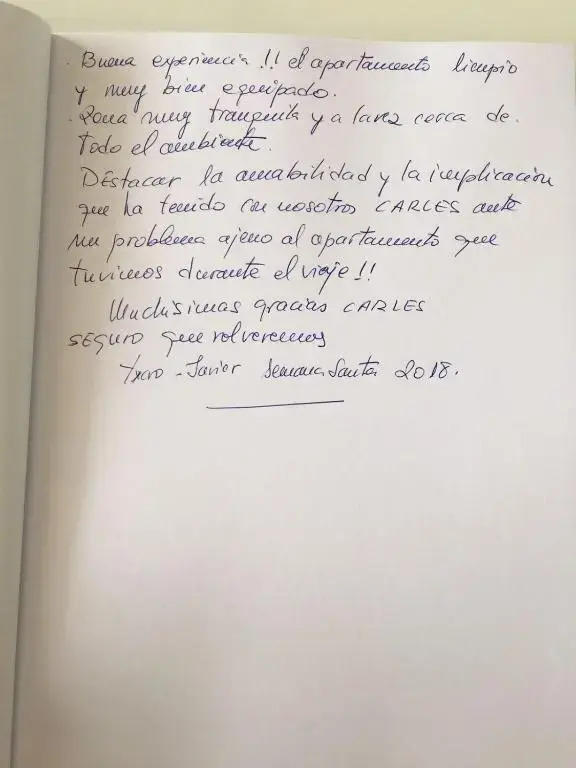 . Buena experiencia !! el apartamento limpio
y muy bien equipado.
. Zona muy tranquila y a la vez cerca de.
todo el ambiente.
Destacar la amabilidad y la implicación
que ha tenido con nosotros CARLES ante
un problema ajeno al apartamento que
tuvimos durante el viaje !!
Muchisimas gracias CARLES
SEGURO que volveremos
- Javier Semana Santa 2018.